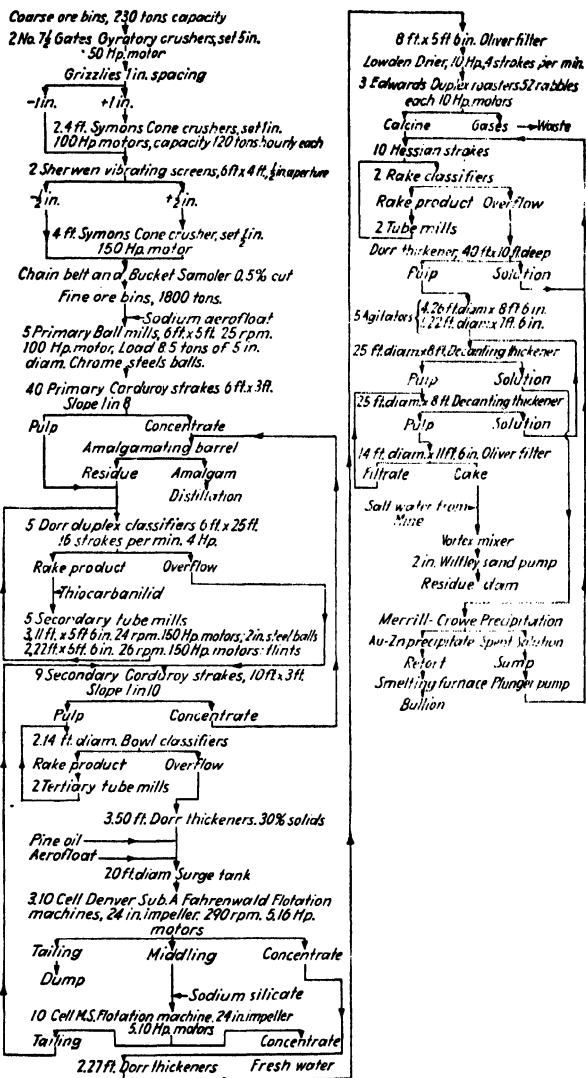 Coarse ore bins, 230 tons capacity
2 No. 7½ Gates Gyratory crushers, set 5in.
50 Hp. motor
Grizzlies 1in. spacing
-1in. +1in.
2.4 ft. Symons Cone crushers, set 1in.
100 Hp motors, capacity 120 tons hourly each
2 Sherwen vibrating screens, 6ft x 4ft, ½in aperture
-½in. +½in.
4 ft. Symons Cone crusher, set ½in.
150 Hp. motor
Chain belt and Bucket Sampler 0.5% cut
Fine ore bins, 1800 tons.
Sodium aerofloat
5 Primary Ball mills, 6ft x 5ft 25 rpm.
100 Hp. motor, Load 8.5 tons of 5 in.
diam. Chrome steels balls.
40 Primary Corduroy strakes 6ft x 3ft.
Slope 1in 8
Pulp Concentrate
Amalgamating barrel
Residue Amalgam
Distillation
5 Dorr duplex classifiers 6ft x 25ft.
16 strokes per min. 4 Hp.
Rake product Overflow
Thiocarbanilid
5 Secondary tube mills
3, 11ft. x 5ft 6in. 24 rpm. 150 Hp. motors, 2in. steel balls
2, 22ft x 5ft. 6in. 26 rpm. 150 Hp. motors: flints
9 Secondary Corduroy strakes, 10ft x 3ft
Slope 1in 10
Pulp Concentrate
2.14 ft. diam. Bowl classifiers
Rake product Overflow
2 Tertiary tube mills
3.50 ft. Dorr thickeners. 30% solids
Pine oil
Aerofloat
20 ft. diam Surge tank
3.10 Cell Denver Sub. A Fahrenwald Flotation
machines, 24 in. impeller. 290 rpm. 5.16 Hp.
motors
Tailing Middling Concentrate
Dump
Sodium silicate
10 Cell M.S. Flotation machine. 24 in. impeller
5.10 Hp. motors
Tailing Concentrate
2.27 ft. Dorr thickeners Fresh water
8 ft. x 5 ft 6 in. Oliver filter
Lowden Drier, 10 Hp, 4 strokes per min.
3 Edwards Duplex roasters 52 rabbles
each 10 Hp. motors
Calcine Gases Waste
10 Hessian strakes
2 Rake classifiers
Rake product Overflow
2 Tube mills
Dorr thickener, 40 ft x 10 ft deep
Pulp Solution
5 Agitators { 4.26 ft. diam x 8 ft 6 in.
1.22 ft. diam x 7 ft. 6 in.
25 ft. diam x 8 ft. Decanting thickener
Pulp Solution
25 ft. diam. x 8 ft. Decanting thickener
Pulp Solution
14 ft. diam. x 11 ft. 6 in. Oliver filter
Filtrate Cake
Salt water from
Mine
Vortex mixer
2 in. Wilfley sand pump
Residue dam
Merrill-Crowe Precipitation
Au-Zn precipitate Spent Solution
Retort Sump
Smelting furnace Plunger pump
Bullion